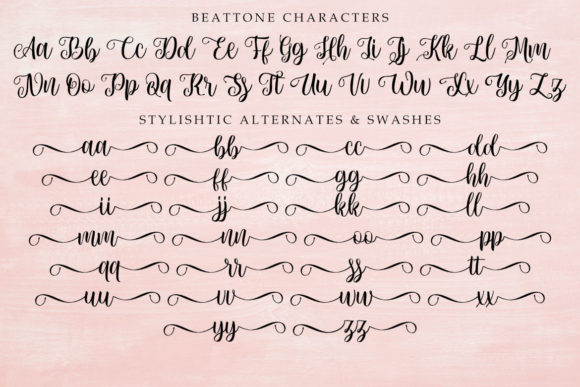 BEATTONE CHARACTERS
Aa Bb Cc Dd Ee Ff Gg Hh Ii Jj Kk Ll Mm
Nn Oo Pp Qq Rr Ss Tt Uu Vv Ww Xx Yy Zz
STYLISHTIC ALTERNATES & SWASHES
aa bb cc dd
ee ff gg hh
ii jj kk ll
mm nn oo pp
qq rr ss tt
uu vv ww xx
yy zz